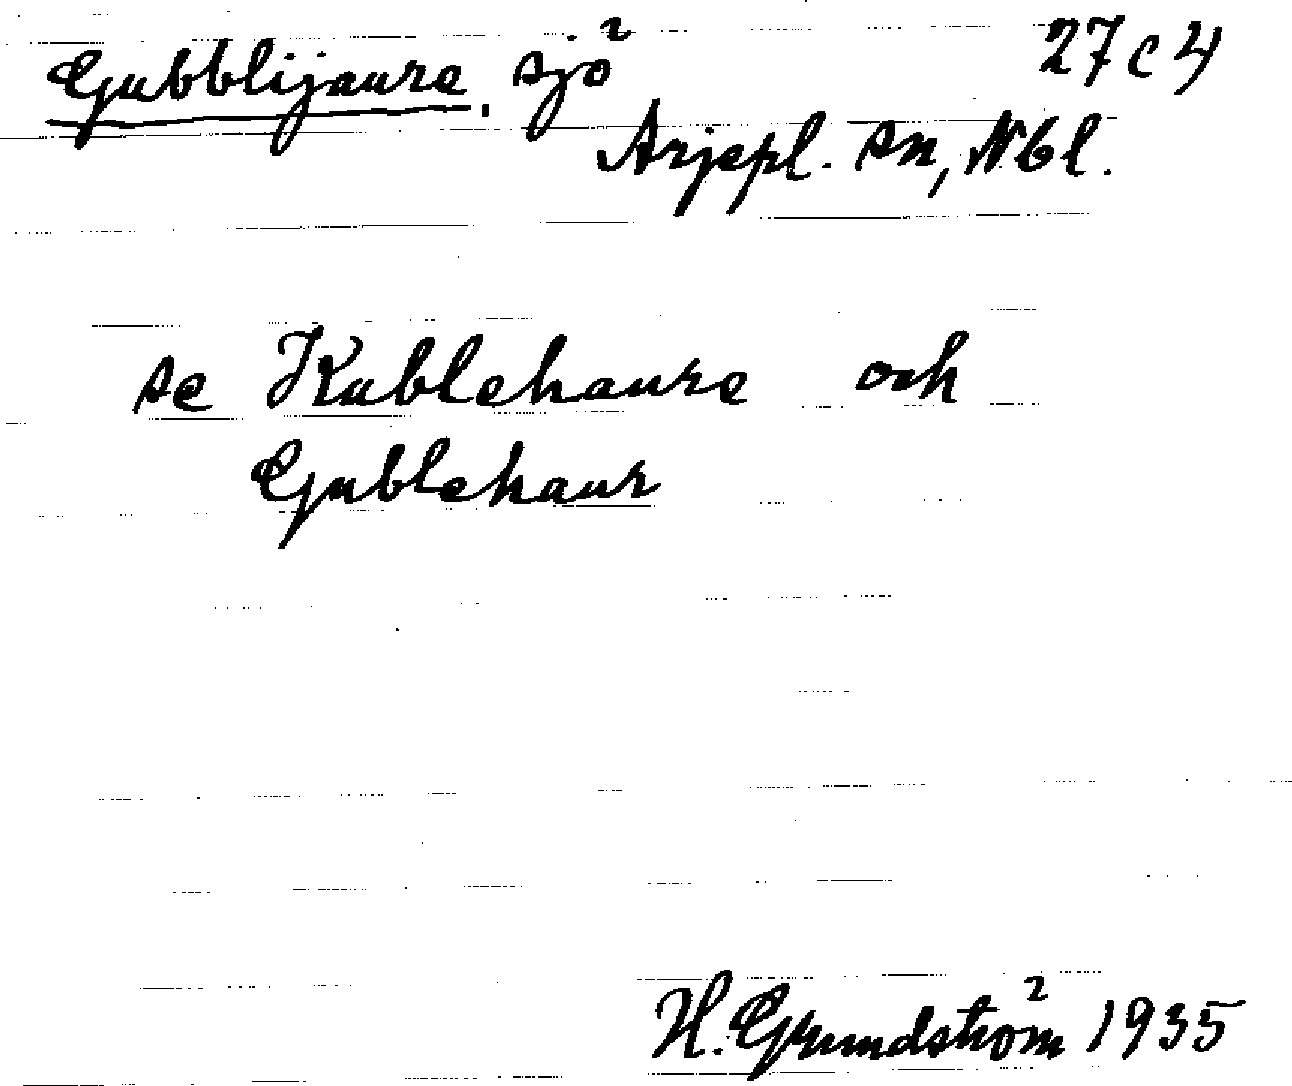 Gubblijaure, sjö 27c4
Arjepl. sn, Nbl.
se Kublehaure och
Gublehaur
H. Grundström 1935